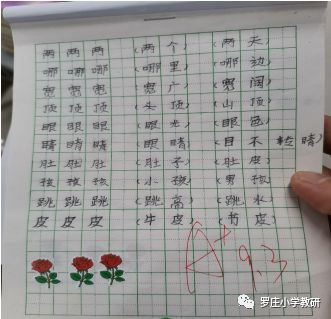 两 两 两 (两 个) (两 天)
哪 哪 哪 (哪 里) (哪 边)
宽 宽 宽 (宽 广) (宽 阔)
顶 顶 顶 (头 顶) (山 顶)
眼 眼 眼 (眼 光) (眼 色)
睛 睛 睛 (眼 睛) (目 不 转 睛)
肚 肚 肚 (肚 子) (肚 皮)
孩 孩 孩 (小 孩) (男 孩)
跳 跳 跳 (跳 高) (跳 水)
皮 皮 皮 (牛 皮) (书 皮)
A+ 9.3
罗庄小学教研